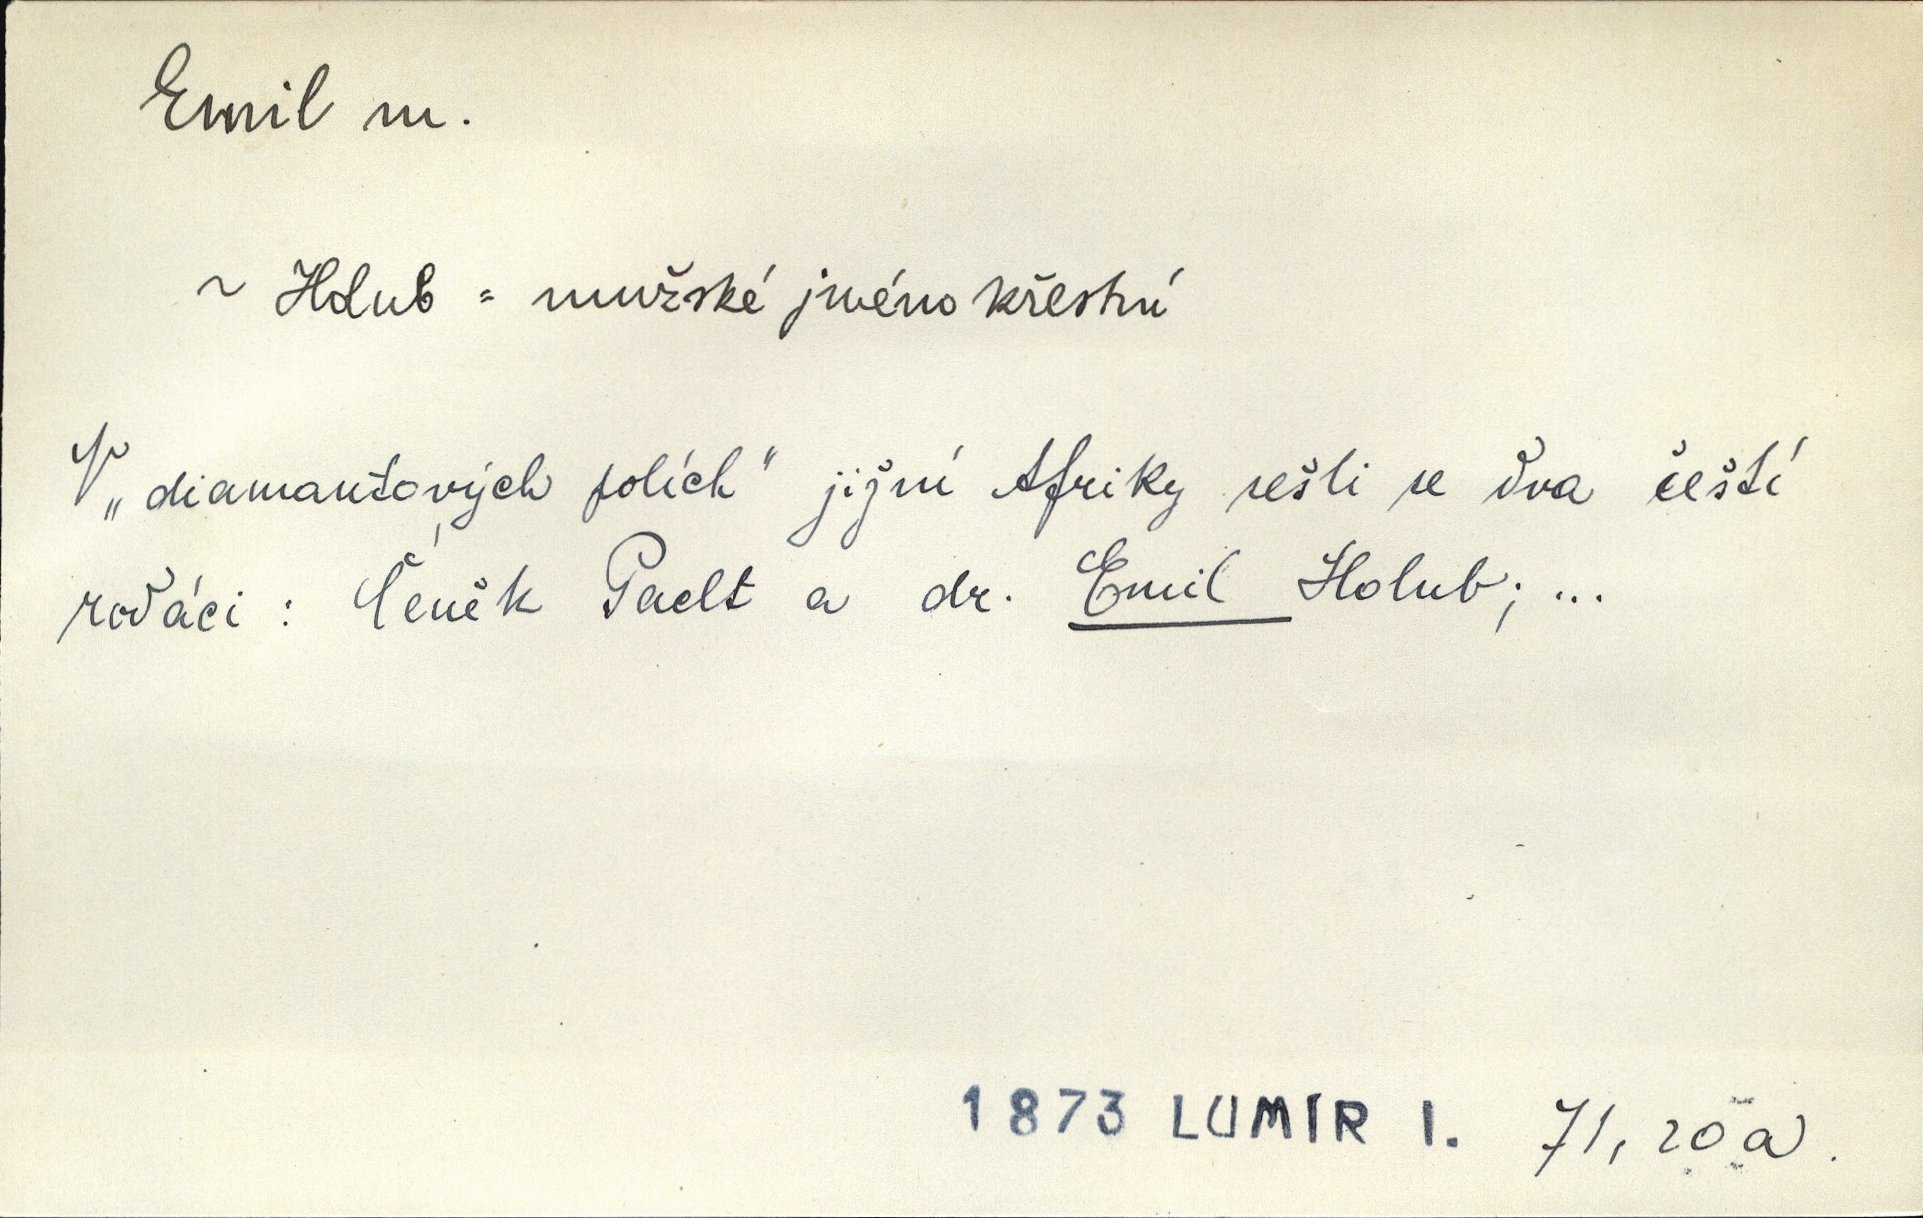 Emil m.
~ Holub = mužské jméno křestní
V „diamantových polích" jižní Afriky sešli se dva čeští
rodáci : Čeněk Paclt a dr. Emil Holub; ...
1873 LUMÍR I. 71, 20 a.